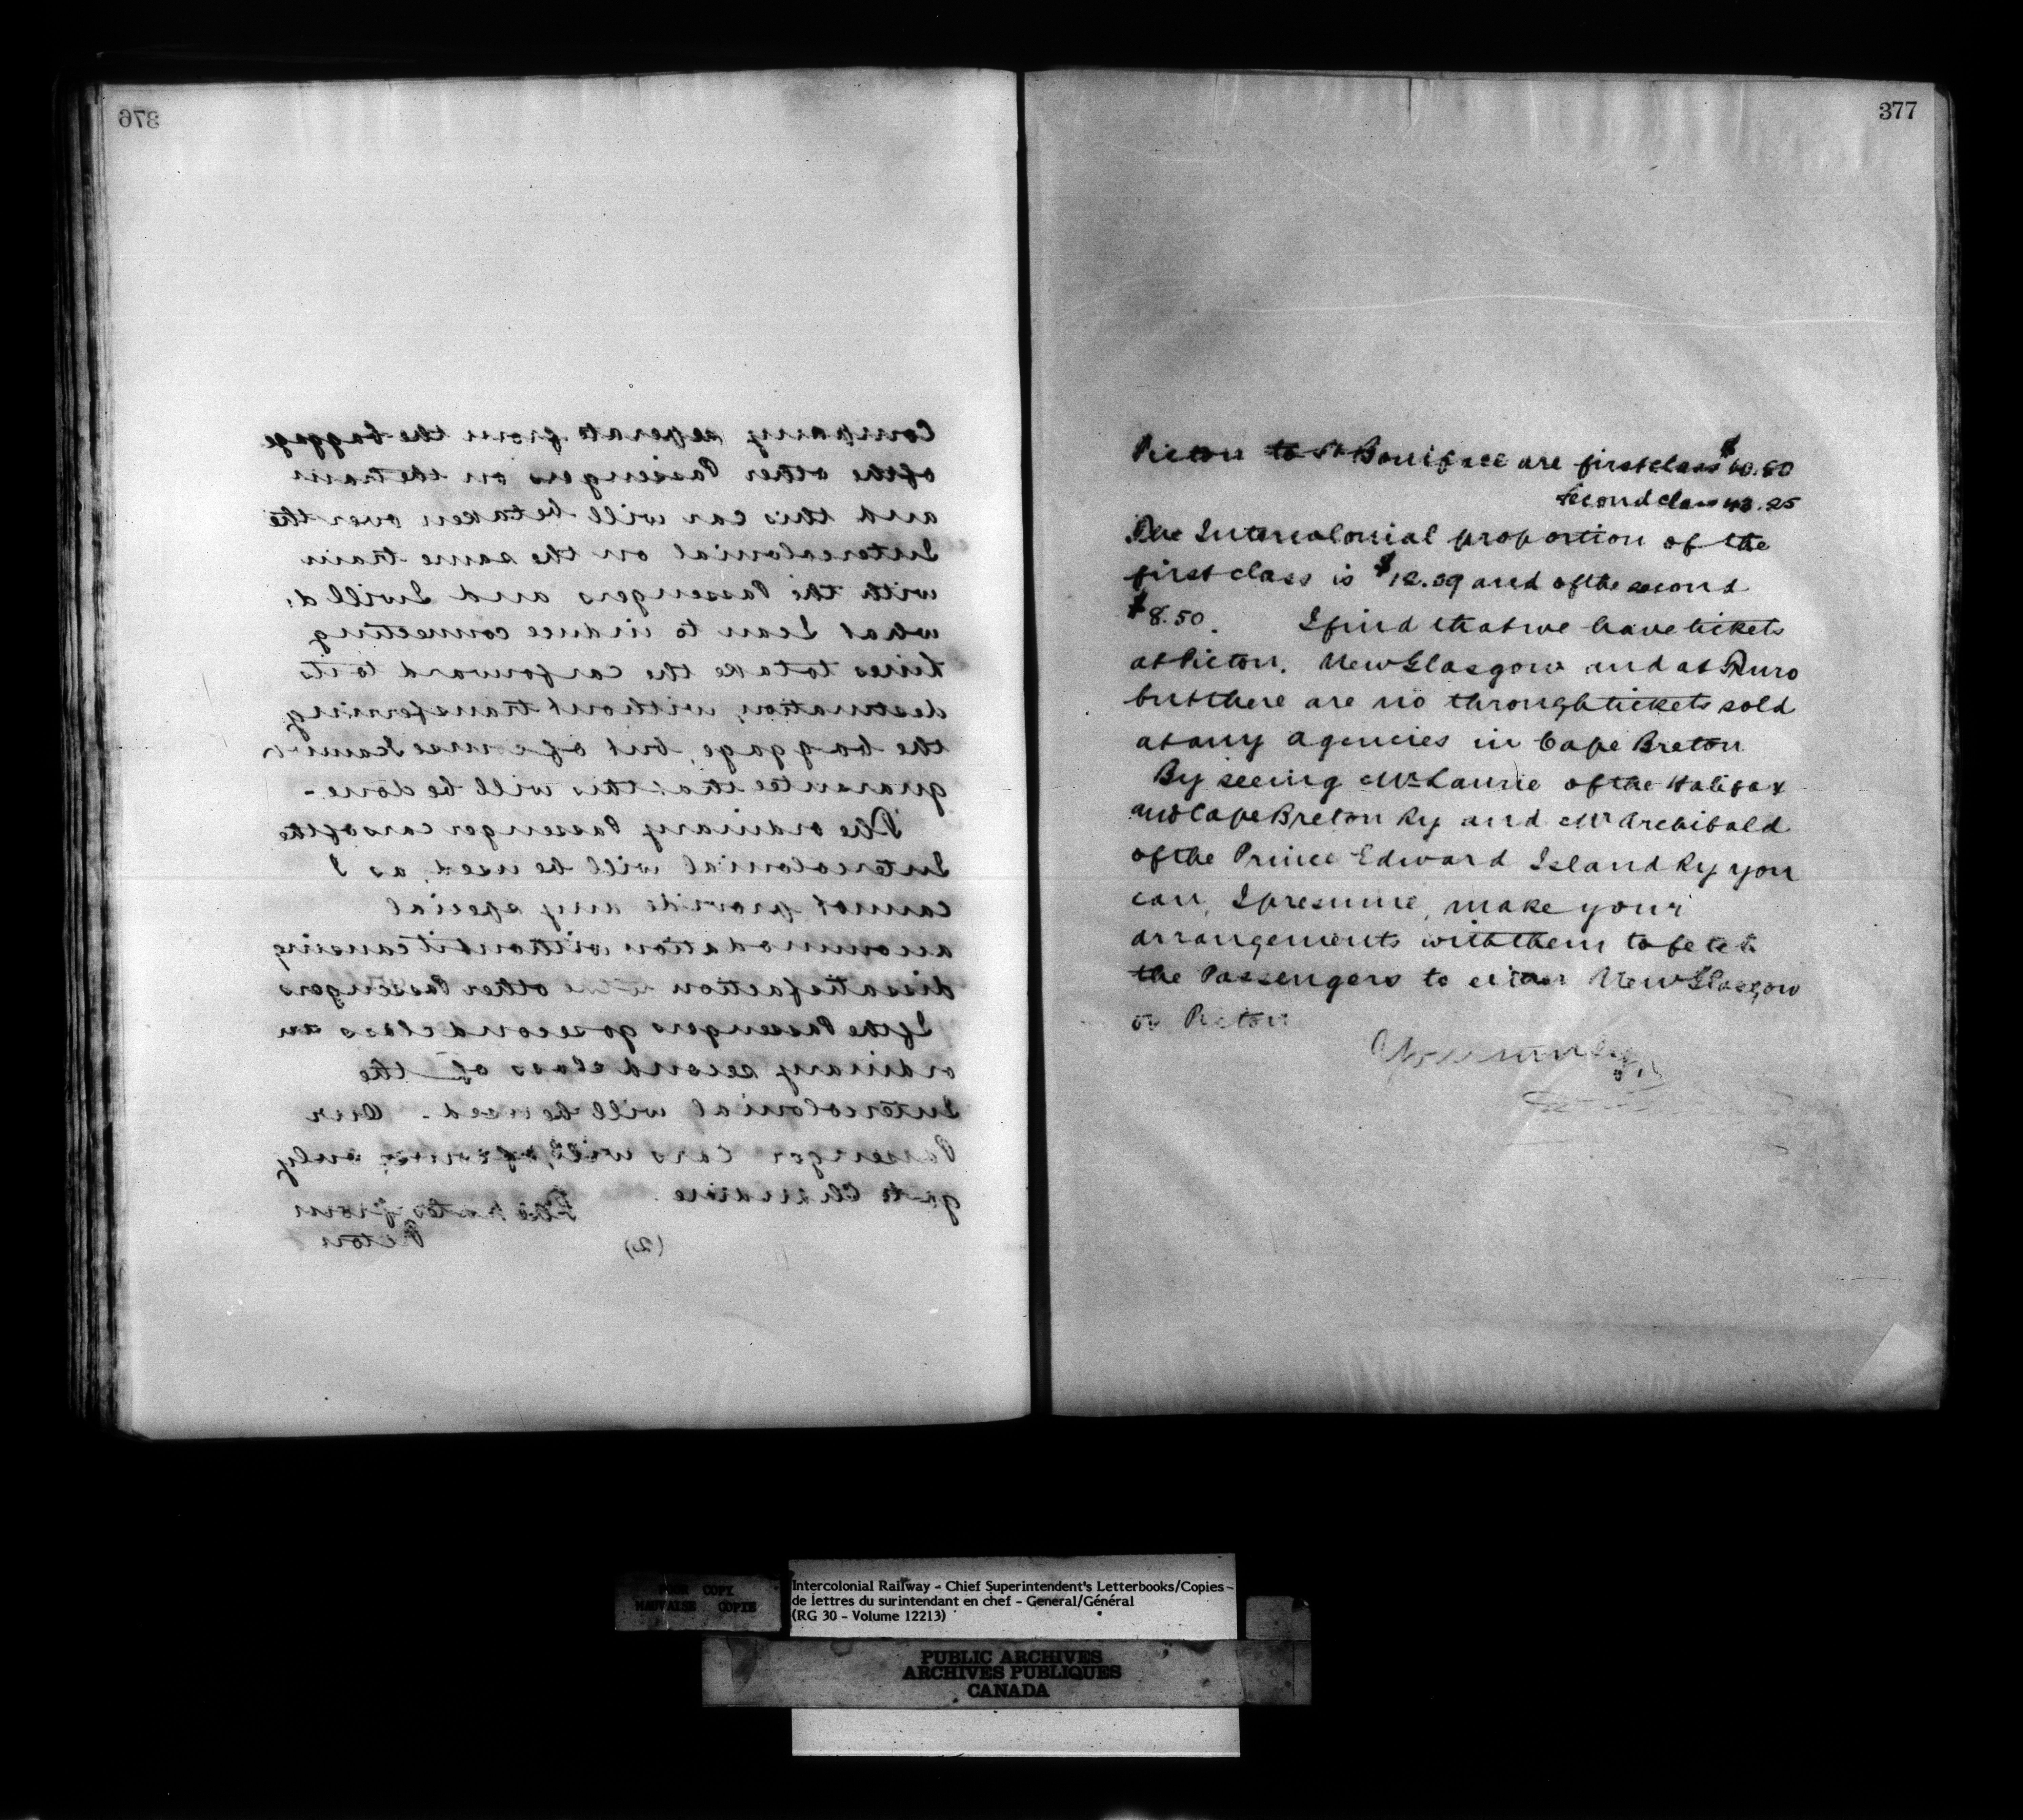 376
Company seperate from the baggage
of the other Passengers on the train
and this car will be taken over the
Intercolonial on the same train
with the Passengers and I will do
what I can to induce connecting
lines to take the car forward to its
destination, without transferring
the baggage, but of course I cannot
guarantee that this will be done.-
The ordinary Passenger cars of the
Intercolonial will be used, as I
cannot provide any special
accommodation without it causing
dissatisfaction to the other Passengers
If the Passengers go second class an
ordinary second class of the
Intercolonial will be used - Our
Passenger Cars will, of course, only
go to Chaudiere.
The rates from
(2) Picton
377
Picton to St Boniface are first class $60.80
second class 43.25
The Intercolonial proportion of the
first class is $12.09 and of the second
$8.50. I find that we have tickets
at Picton, New Glasgow and at Truro
but there are no through tickets sold
at any agencies in Cape Breton
By seeing Mr Laurie of the Halifax
and Cape Breton Ry and Mr Archibald
of the Prince Edward Island Ry you
can, I presume, make your
arrangements with them to fetch
the Passengers to either New Glasgow
or Picton
Yours truly,
POOR COPY
MAUVAISE COPIE
Intercolonial Railway - Chief Superintendent's Letterbooks/Copies -
de lettres du surintendant en chef - General/Général
(RG 30 - Volume 12213)
PUBLIC ARCHIVES
ARCHIVES PUBLIQUES
CANADA